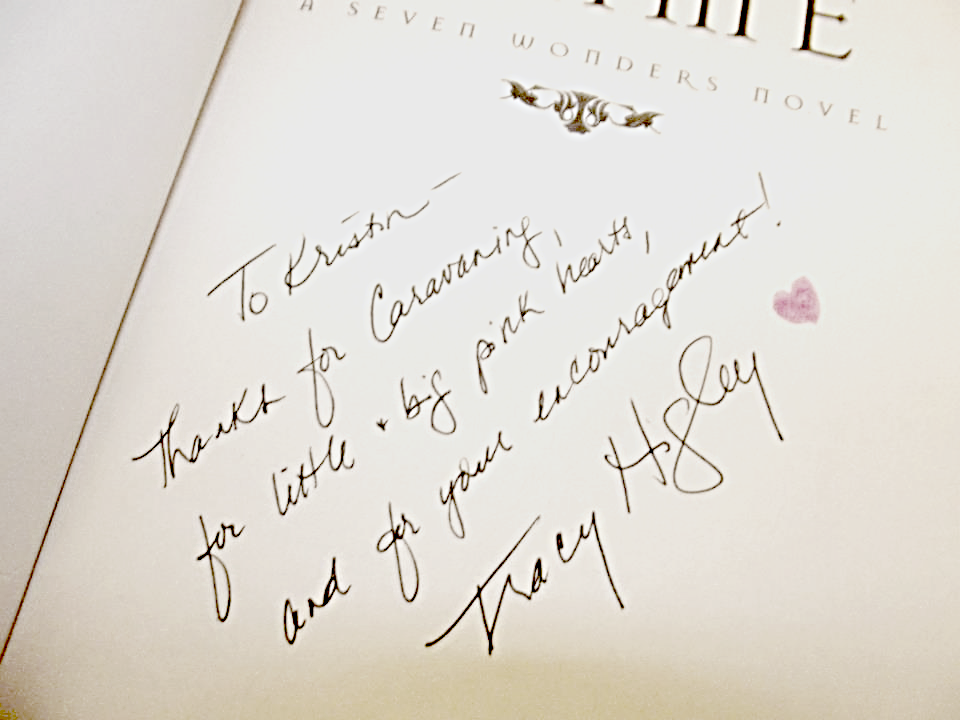 A SEVEN WONDERS NOVEL
To Kristin -
Thanks for Caravaning,
for little + big pink hearts,
and for your encouragement!
Tracy Higley